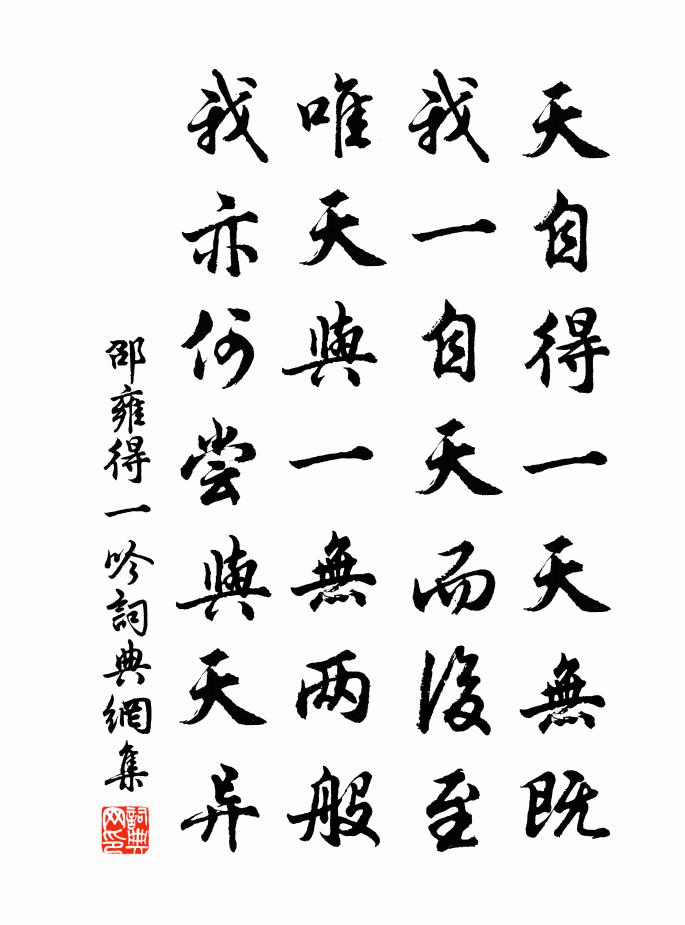 天自得一天無既
我一自天而後至
唯天與一無两般
我亦何嘗與天异
邵雍得一吟詞典網集
詞典
网印